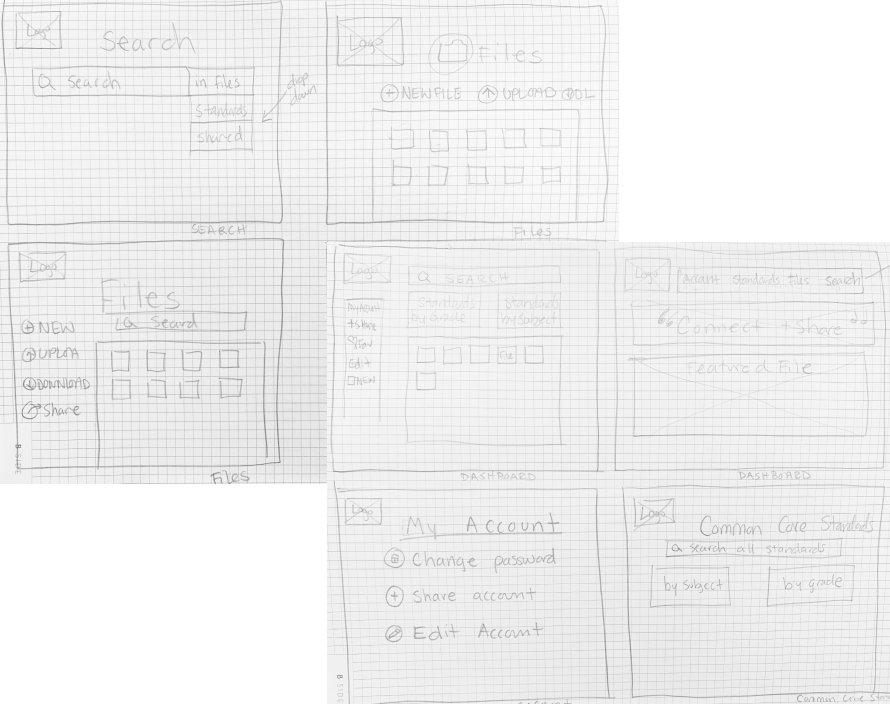 Logo
Search
Search
in files
Standards
shared
drop
down
SEARCH
Logo
Files
NEW FILE
UPLOAD
DL
Files
Logo
Files
NEW
UPLOA
DOWNLOAD
Share
Files
B SIDE
Logo
SEARCH
Standards
by Grade
Standards
by Subject
+Share
Edit
NEW
File
DASHBOARD
Logo
Account standards, files search
Connect + Share
Featured File
DASHBOARD
Logo
My Account
Change password
Share account
Edit Account
B SIDE
Logo
Common Core Standards
search all standards
by subject
by grade
Common Core Stan